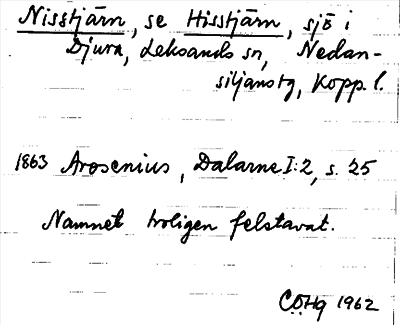 Nisstjärn, se Hisstjärn, sjö i
Djura, Leksands sn, Nedan-
siljans tg, Kopp. l.
1863 Arosenius, Dalarne I:2, s. 25
Namnet troligen felstavat.
CÖHg 1962